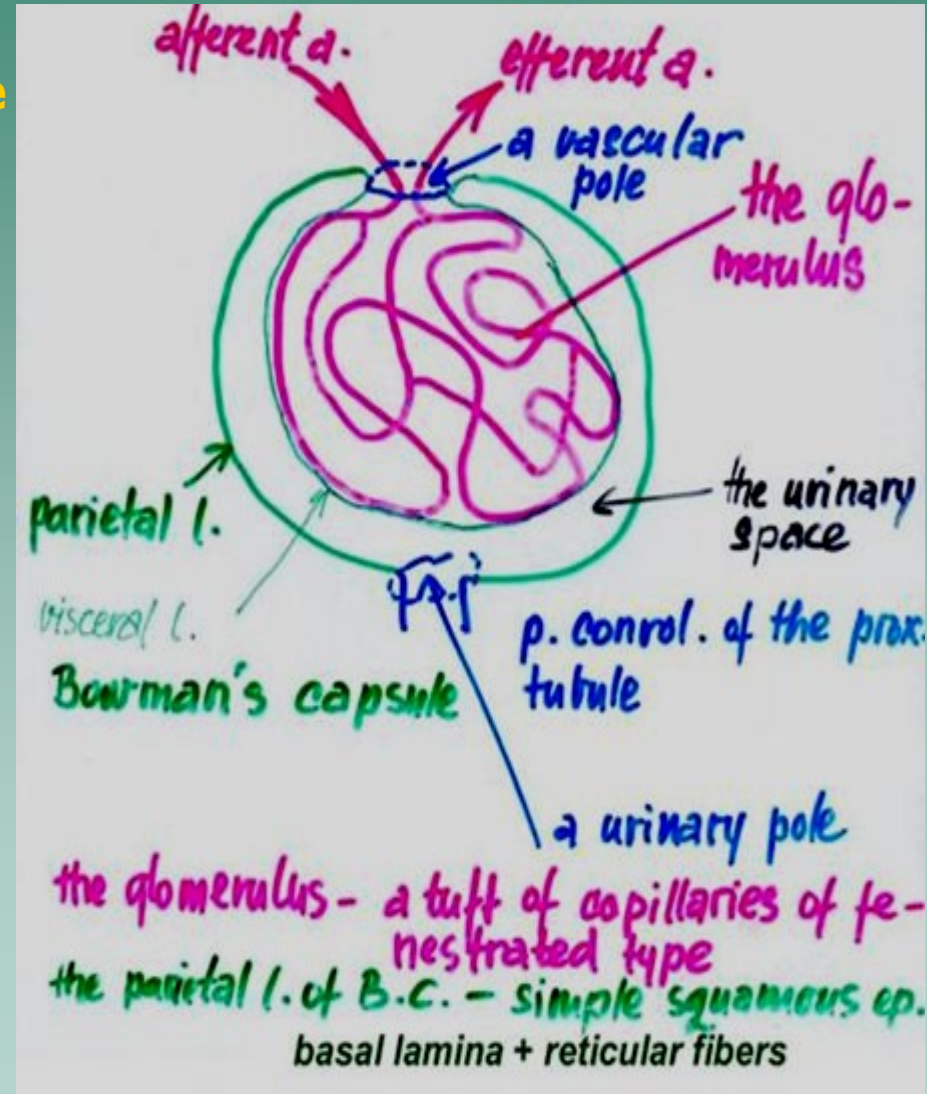 afferent a.
efferent a.
a vascular
pole
the glo-
merulus
parietal l.
the urinary
space
visceral l.
p. convol. of the prox.
tubule
Bowman's capsule
a urinary pole
the glomerulus - a tuft of capillaries of fe-
nestrated type
the parietal l. of B.C. - simple squamous ep.
basal lamina + reticular fibers